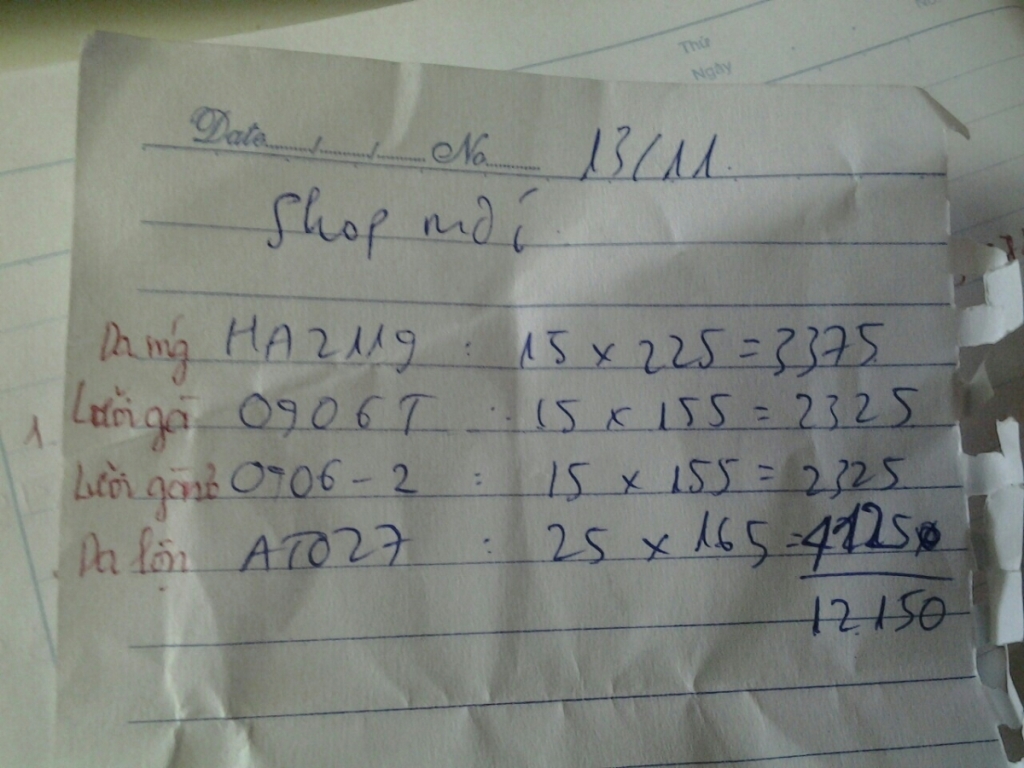 Thứ
Ngày
Date...../...../..... No........ 13/11.
Shop mới
Da mý HA2119 : 15 x 225 = 3375
Lười gà 0906T : 15 x 155 = 2325
Lười gà nhỏ 0906-2 : 15 x 155 = 2325
Da lộn AT027 : 25 x 165 = 4125
12.150
1